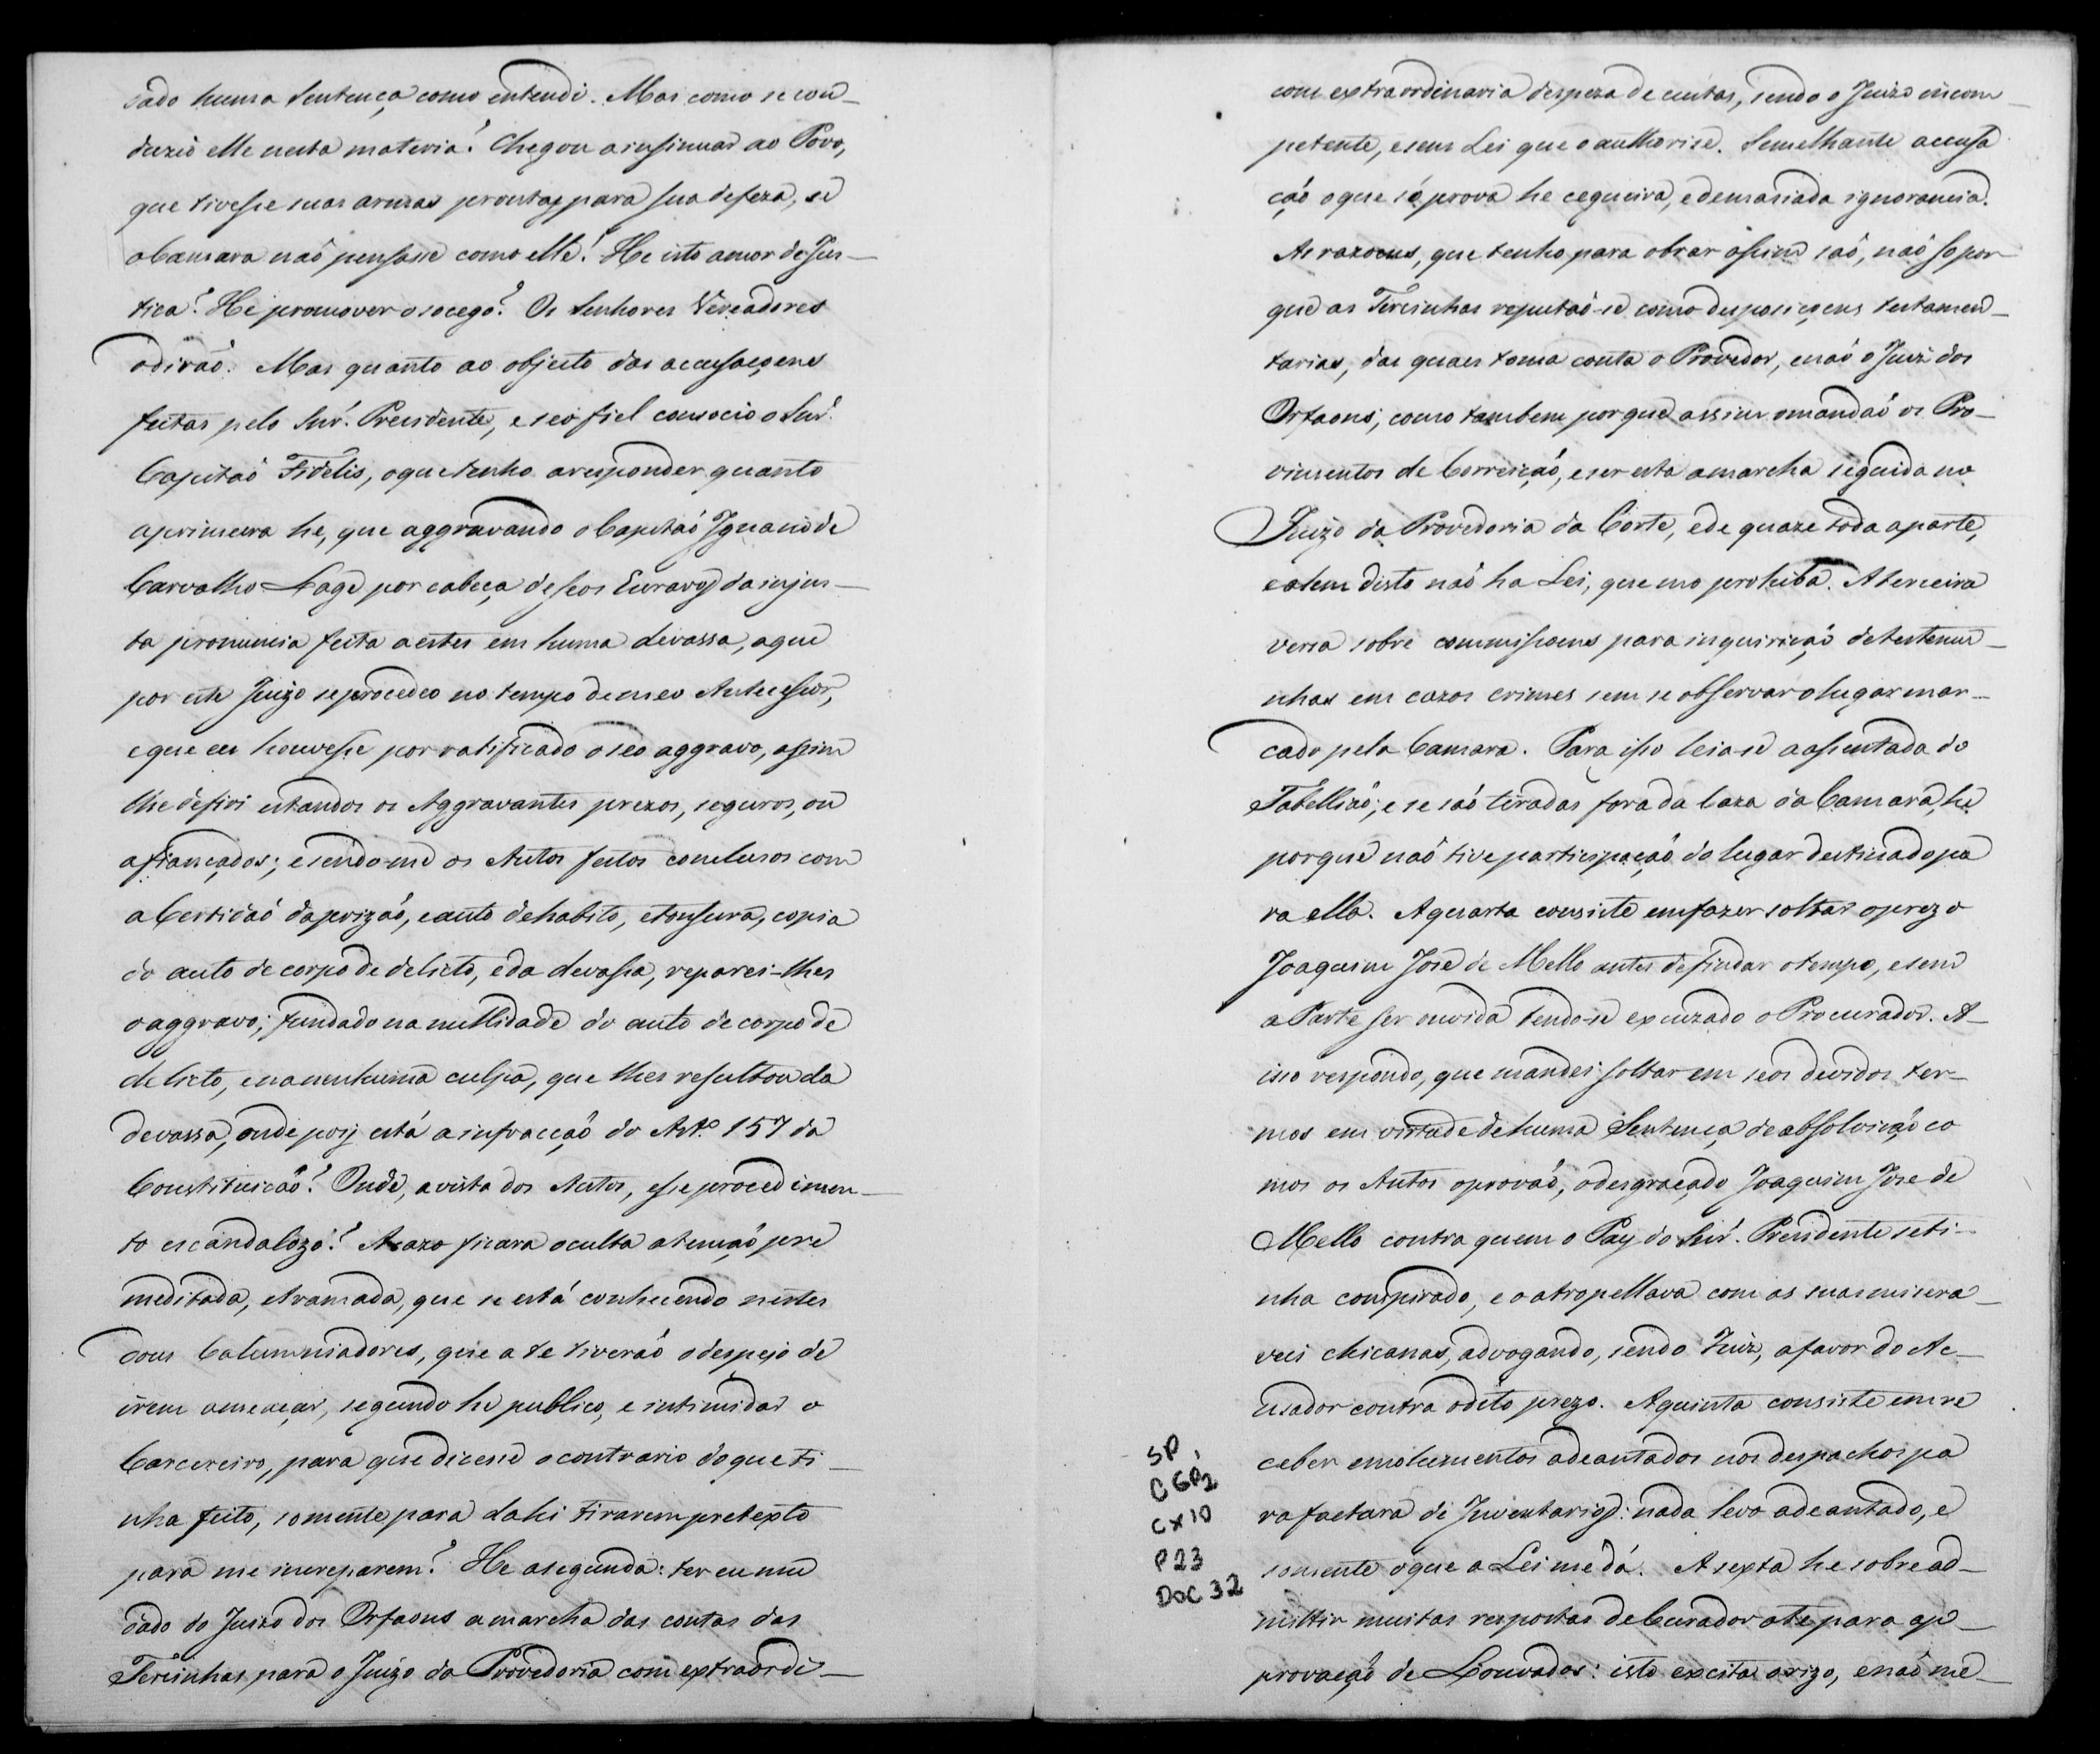 dado huma Sentença como entendi. Mas como se con-
duzio elle nesta materia? Chegou a insinuar ao Povo,
que tivesse suas armas promtas para sua defeza, se
a Camara naõ pensasse como elle! He isto amor de Jus-
tica? He promover o socego? Os Senhores Vereadores
o dirão. Mas quanto ao objecto das accusaçoens
feitas pelo Snr. Presidente, e seo fiel consocio o Snr.
Capitaõ Fidelis, o que tenho a responder quanto
a primeira he, que aggravando o Capitaõ Ignacio de
Carvalho Lage por cabeça de seos Escravos da injus-
ta pronuncia feita a estes em huma devassa, a que
por este Juizo se procedeo no tempo de meo Antecessor,
e que eu houvesse por ratificado o seo aggravo, assim
lhe defiri estandos os Aggravantes prezos, seguros, ou
afiançados; e sendo-me os Autos feitos conclusos com
a Certidaõ da prizaõ, e auto de habito, e tonsura, copia
do auto de corpo de delicto, e da devassa, reparei-lhes
o aggravo; fundado na nullidade do auto de corpo de
delicto, e na nenhuma culpa, que lhes resultou da
devassa, onde pois está a infracçaõ do Art.º 157 da
Constituicaõ? Onde, a vista dos Autos, esse procedimen-
to escandalozo? Acazo ficara oculta a tençaõ pre
meditada, e tramada, que se está conhecendo nestes
dous Calumniadores, que a te tiveraõ o despejo de
irem ameaçar, segundo he publico, e intimidar o
Carcereiro, para que dicesse o contrario do que ti-
nha feito, somente para dahi tirarem pretexto
para me increparem? He a segunda: ter eu mu
dado do Juizo dos Orfaons a marcha das contas das
Tercinhas para o Juizo da Provedoria com extraordi-
com extraordinaria despeza de custas, sendo o Juizo incom-
petente, e sem Lei que o authorise. Semelhante accusa
çaõ o que só prova he cegueira, e demasiada ignorancia.
As razoens, que tenho para obrar assim saõ, naõ so por
que as Tercinhas reputaõ-se como disposiçoens testamen-
tarias, das quaes toma conta o Provedor, e naõ o Juiz dos
Orfaons, como tambem por que assim o mandaõ os Pro-
vimentos de Correiçaõ, e ser esta a marcha seguida no
Juizo da Provedoria da Corte, e de quaze toda a parte,
e alem disto naõ ha Lei, que mo prohiba. A terceira
versa sobre commissoens para inquiriçaõ de testemu-
nhas em cazos crimes sem se observar o lugar mar-
cado pela Camara. Para isso leia-se a assentada do
Tabelliaõ; e se saõ tiradas fora da Caza da Camara, he
porque naõ tive participaçaõ do lugar destinado pa
ra ella. A quarta consiste em fazer soltar o prezo
Joaquim Jose de Mello antes de findar o tempo, e sem
a Parte ser ouvida tendo-se excuzado o Procurador. A-
isso respondo, que mandei soltar em seos devidos ter-
mos em virtade de huma Sentença de absolviçaõ co
mos os Autos o provaõ, o desgraçado Joaquim Jose de
Mello contra quem o Pay do Snr. Presidente se ti-
nha conspirado, e o atropellava com as suas misera-
veis chicanas, advogando, sendo Juiz, a favor do Ac-
cusador contra o dito prezo. A quinta consiste em re
ceber emolumentos adeantados nos despachos pa
ra factura de Inventarios: nada levo adeantado, e
somente o que a Lei me dá. A sexta he sobre ad-
mittir muitas respostas de Curador ate para ap-
provaçaõ de Louvados: isto excita o rizo, e naõ me-
SP,
CGP2
CX10
P23
DOC 32